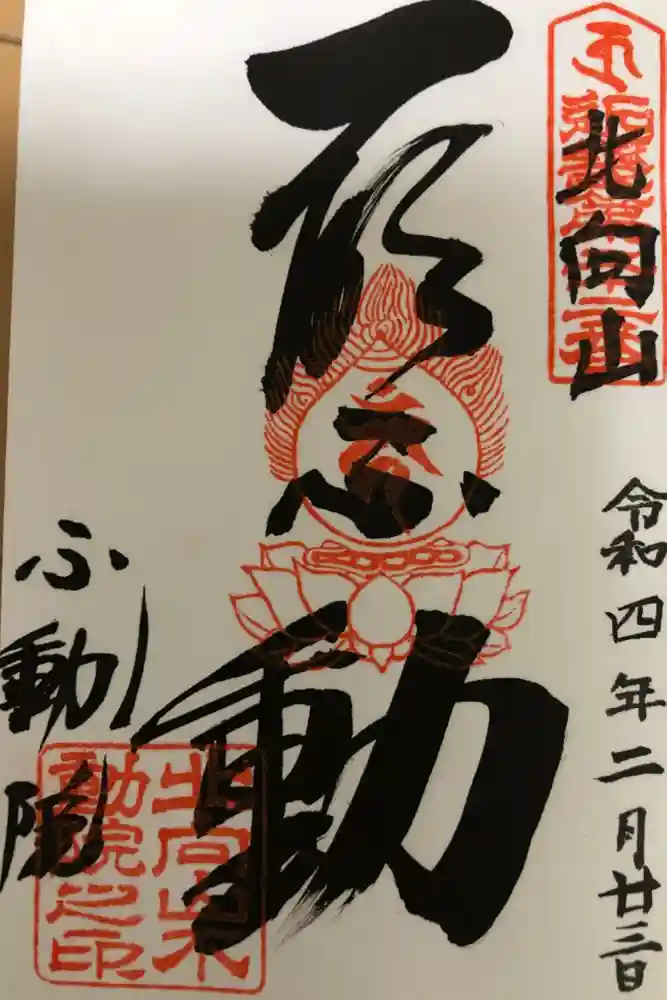 北向山
令和四年二月廿三日
不動
不動院
北向山不
動院之印